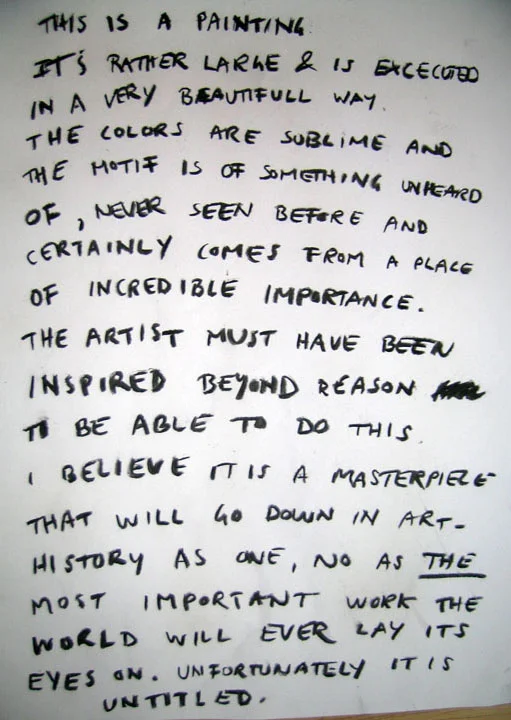 THIS IS A PAINTING
IT'S RATHER LARGE & IS EXCECUTED
IN A VERY BEAUTIFULL WAY.
THE COLORS ARE SUBLIME AND
THE MOTIF IS OF SOMETHING UNHEARD
OF, NEVER SEEN BEFORE AND
CERTAINLY COMES FROM A PLACE
OF INCREDIBLE IMPORTANCE.
THE ARTIST MUST HAVE BEEN
INSPIRED BEYOND REASON
TO BE ABLE TO DO THIS.
I BELIEVE IT IS A MASTERPIECE
THAT WILL GO DOWN IN ART-
HISTORY AS ONE, NO AS THE
MOST IMPORTANT WORK THE
WORLD WILL EVER LAY ITS
EYES ON. UNFORTUNATELY IT IS
UNTITLED.